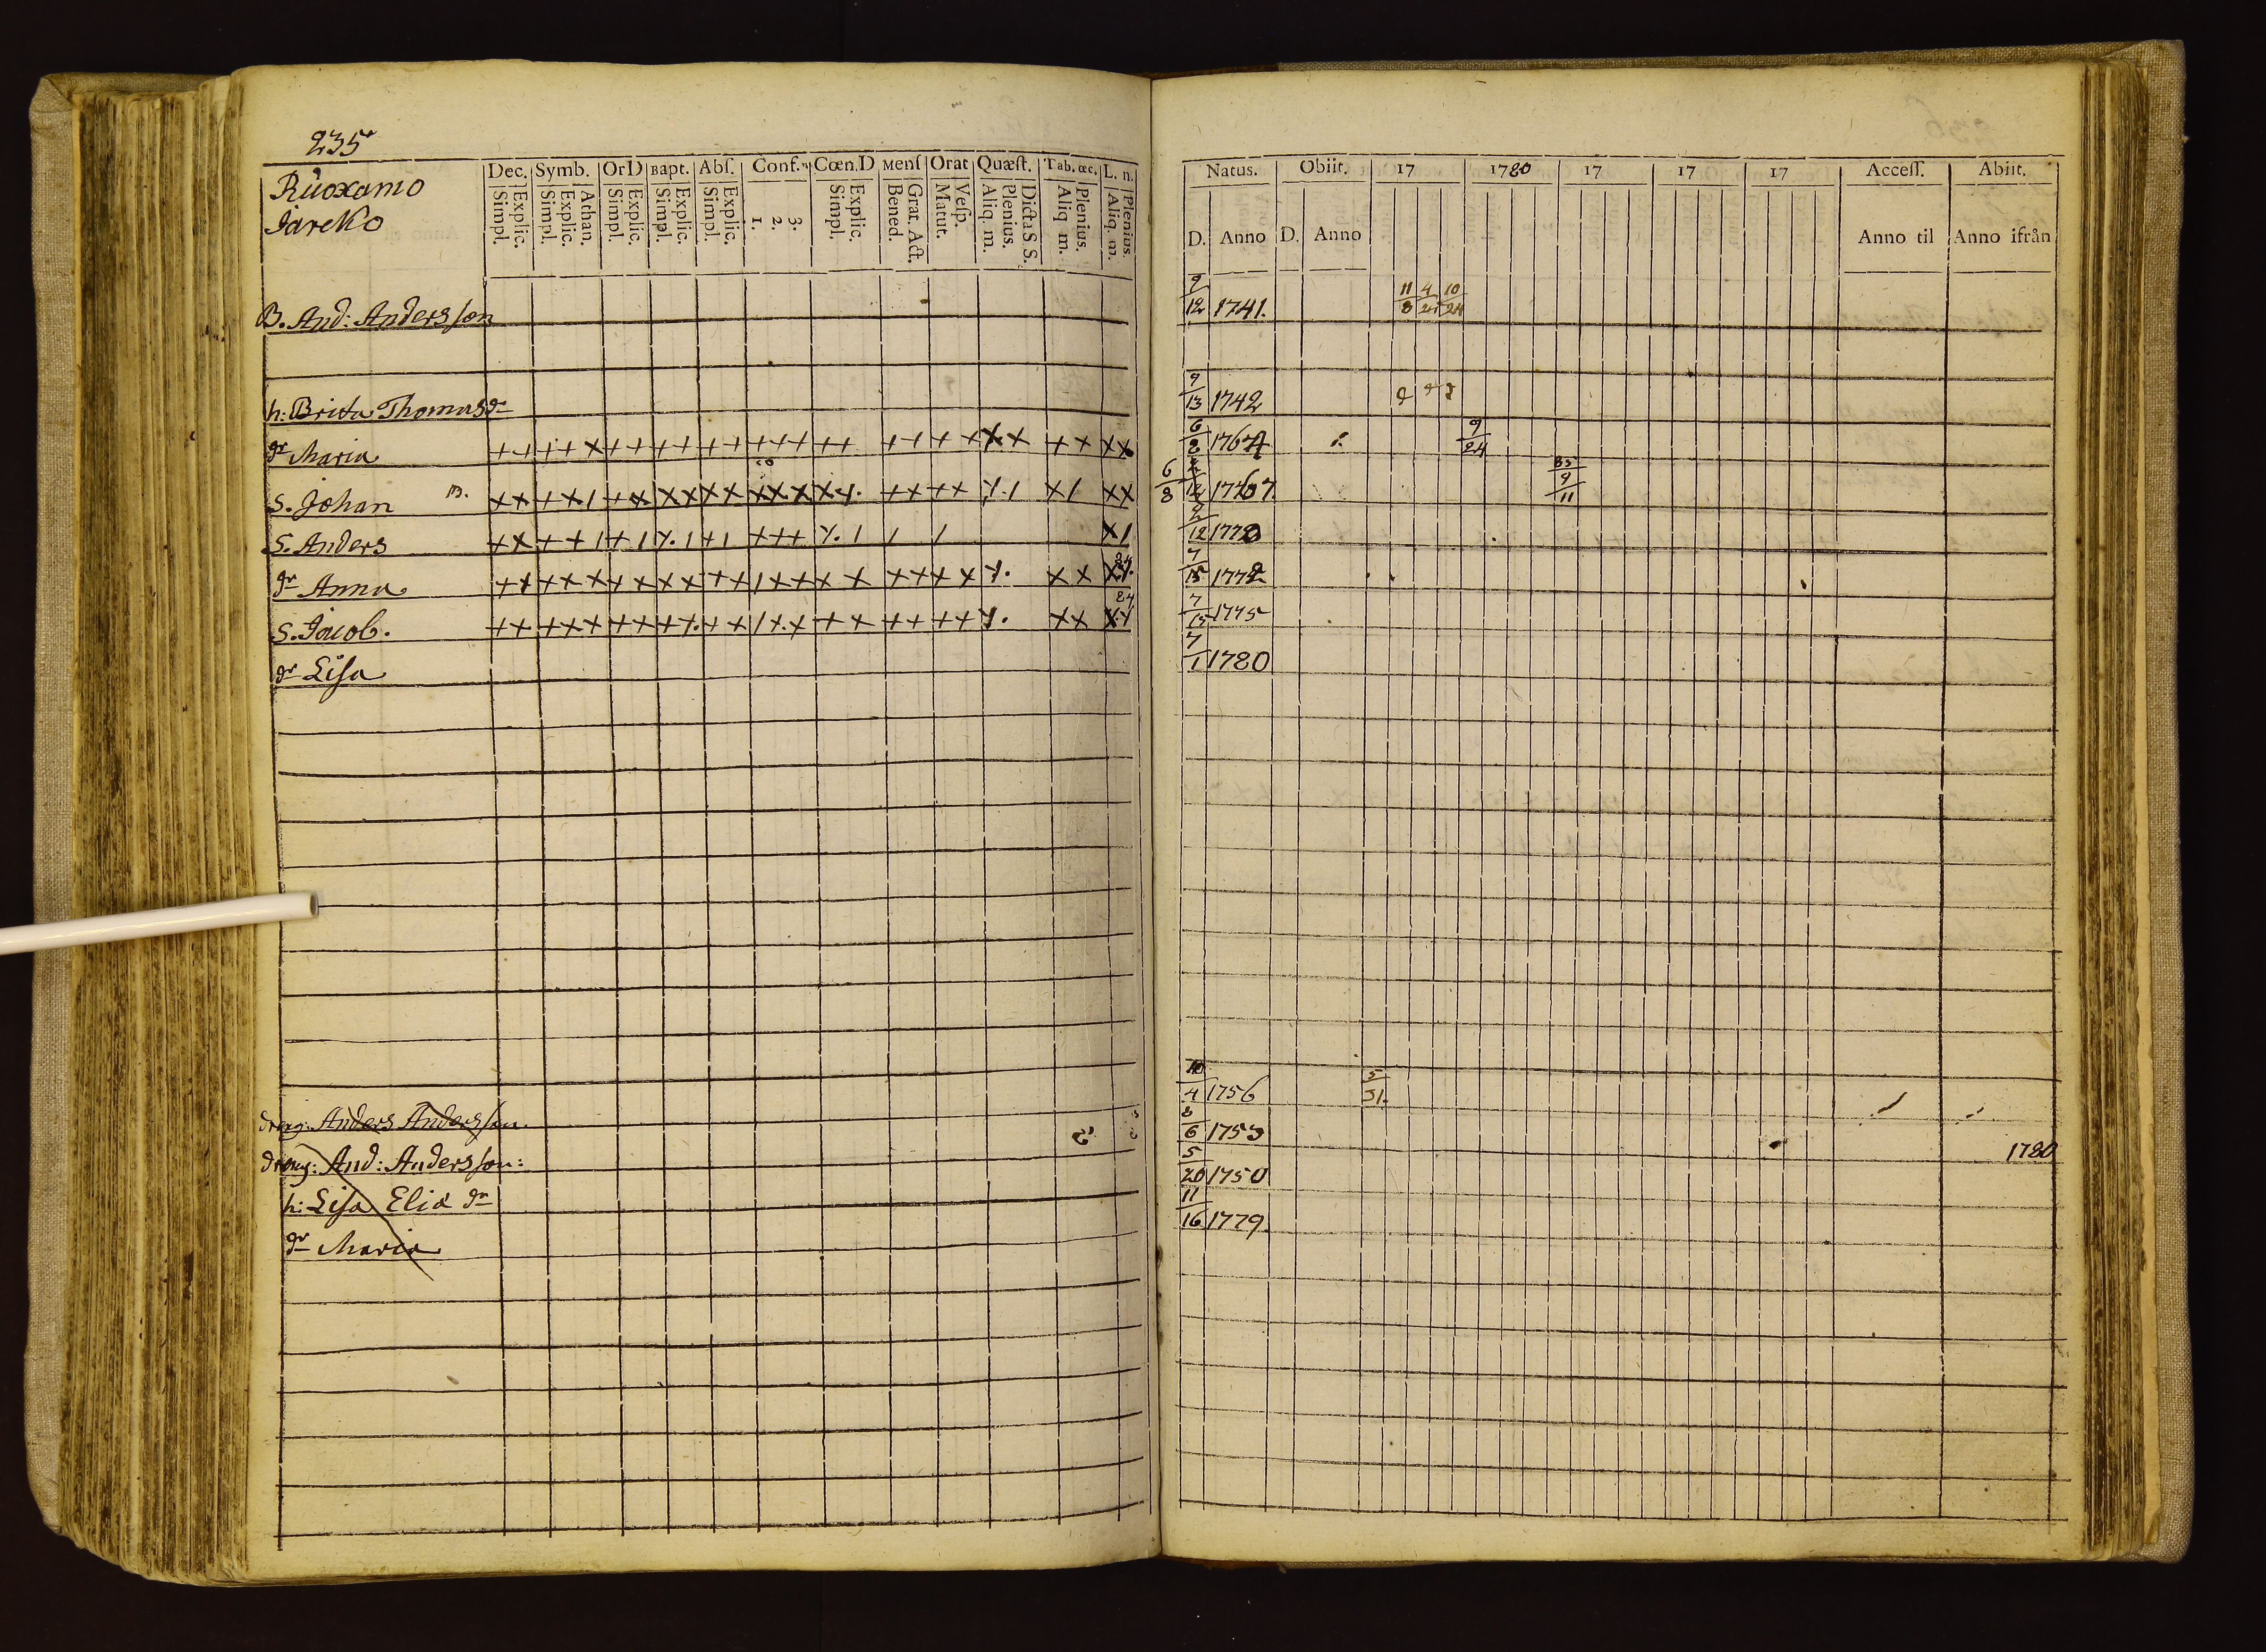 235
Rüoxamo
Jareko
Dec. Symb. OrD Bapt. Abſ. Conf. Cœn.D Menſ Orat Quæſt. Tab. œc. L. n.
Explic. Simpl. Athan. Explic. Simpl. Explic. Simpl. Explic. Simpl. Explic. Simpl. 3. 2. 1. Explic. Simpl. Grat. Act. Bened. Veſp. Matut. Dicta S. S. Plenius. Aliq. m. Plenius. Aliq. m. Plenius. Aliq. m.
B. And: Andersſon
h: Brita Thomasdr
dr Maria
S. Johan
S. Anders
dr Anna
S. Jacob.
dr Liſa
dreng: Anders Andersſon
dreng: And: Andersſon:
h: Liſa Eliæ dr
dr Maria
Natus. Obiit. 17 1780 17 17 17 Acceſſ. Abiit.
D. Anno D. Anno Anno til Anno ifrån
9/12 1741. 11/8 4/24 10/24
9/13 1742
6/8 1764 9/24
6/8 1767 85 9/11
2/12 1770
7/15 1772
7/15 1775
7/1 1780
10/4 1756 5/31.
8/6 1753 1780
5/20 1750
11/16 1779.